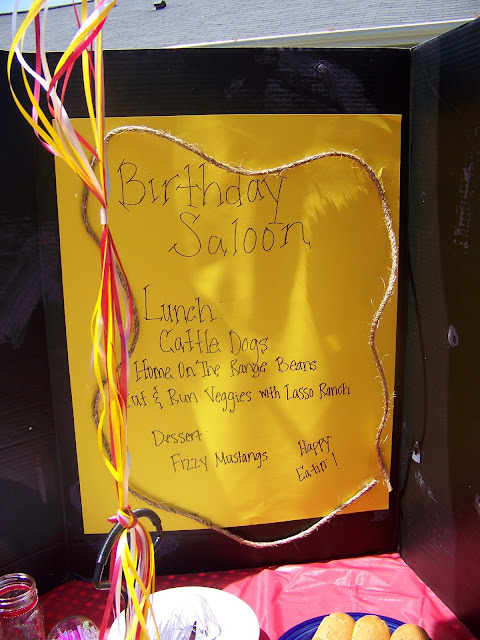 Birthday
Saloon
Lunch:
Cattle Dogs
Home On The Range Beans
& Run Veggies with Lasso Ranch
Dessert:
Fizzy Mustangs
Happy
Eatin'!